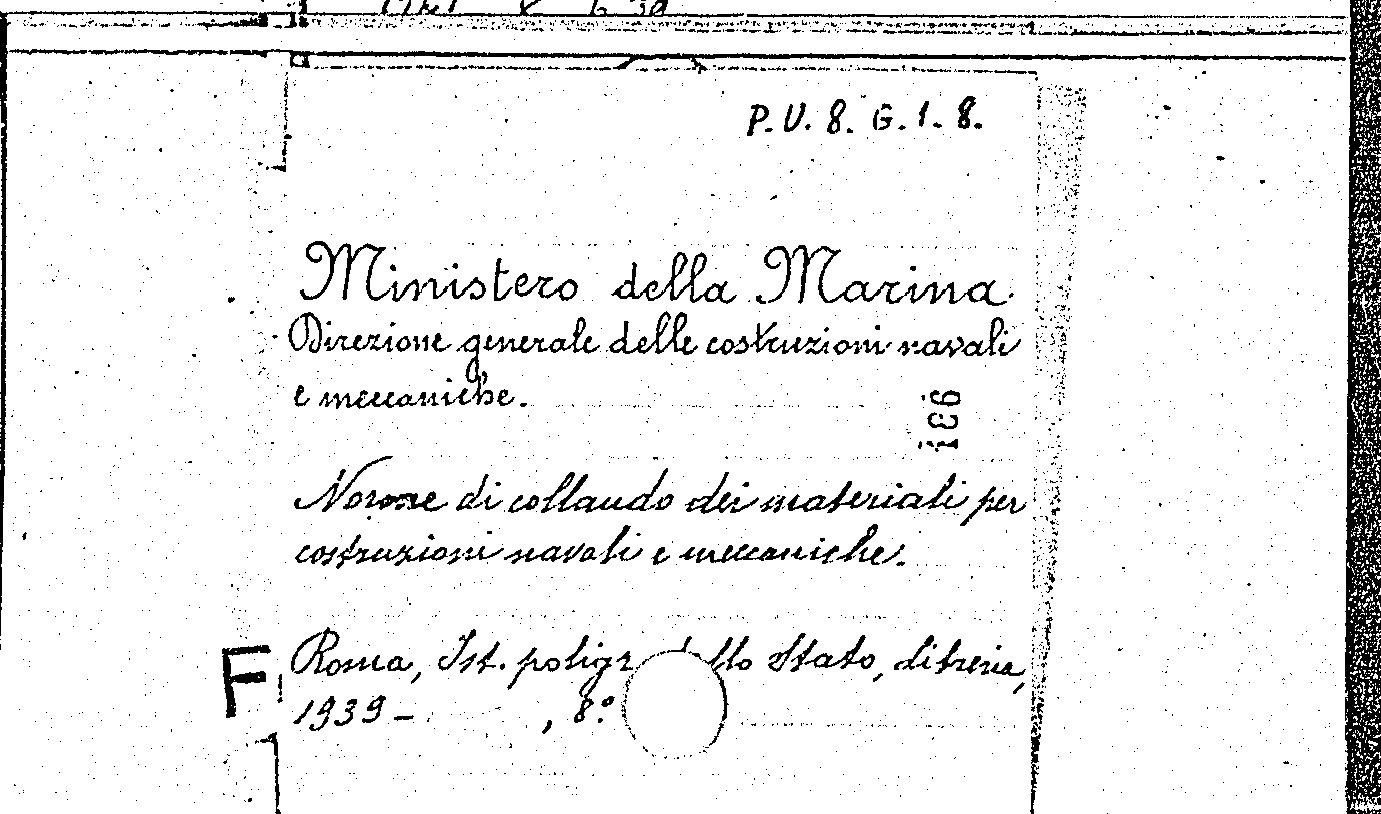 P.V.8.G.1.8.
Ministero della Marina
Direzione generale delle costruzioni navali
e meccaniche.
Norme di collaudo dei materiali per
costruzioni navali e meccaniche.
F
Roma, Ist. poligr. dello Stato, libreria,
1939 - , 8.º